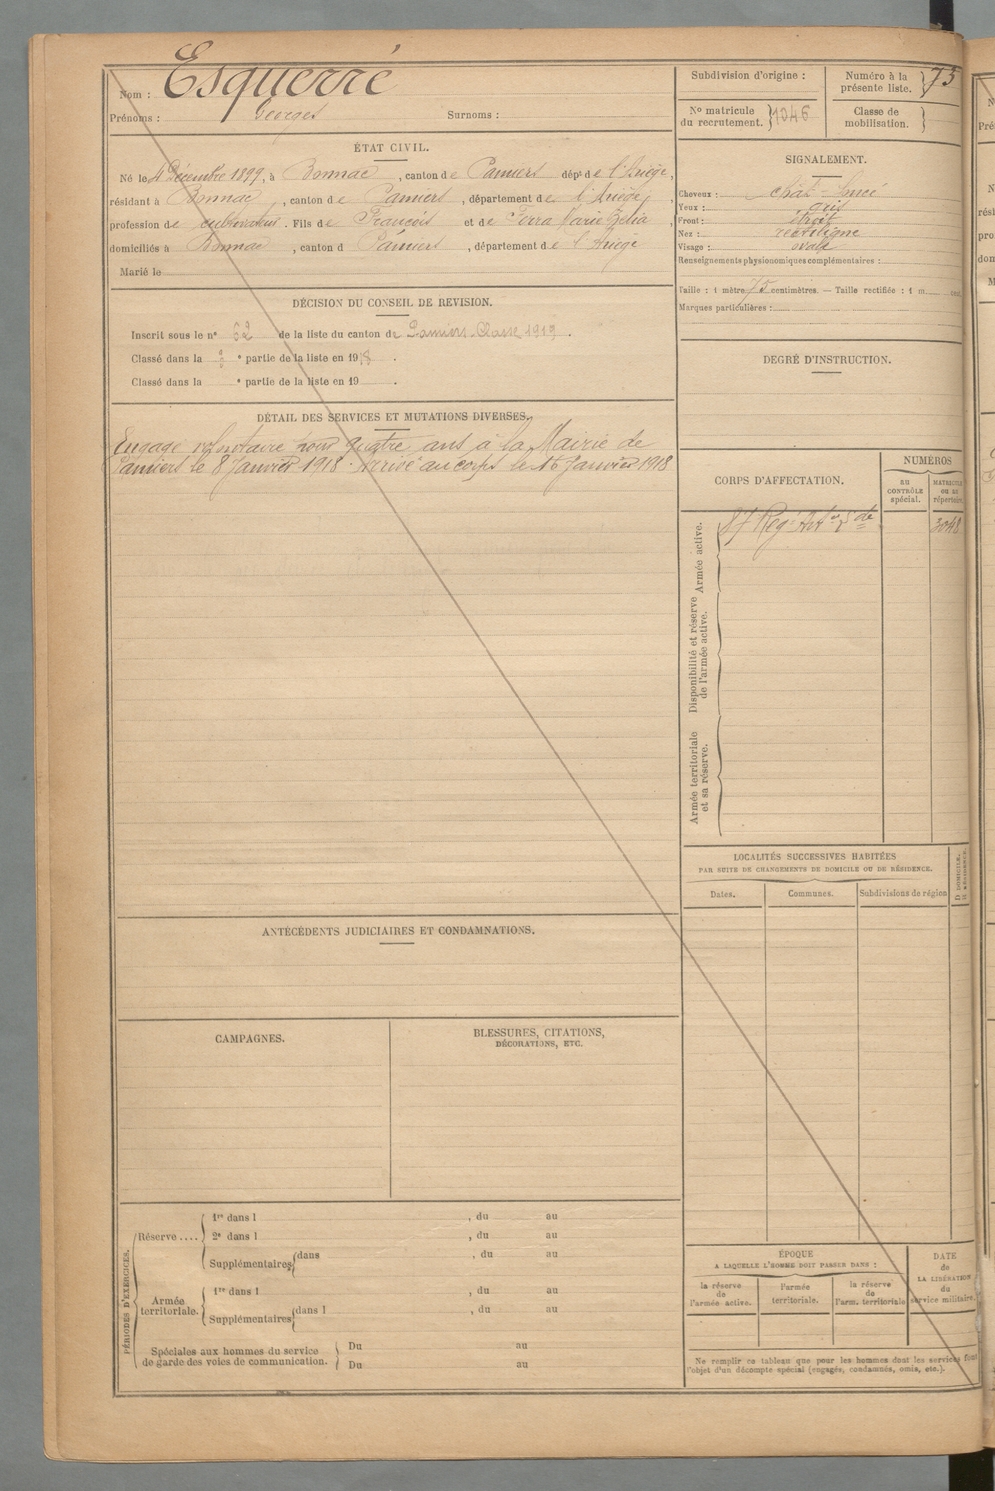 Nom : Esquerré
Prénoms : Georges Surnoms :
Subdivision d'origine :
Numéro à la présente liste. 75
N° matricule du recrutement. 1046
Classe de mobilisation.
ÉTAT CIVIL.
Né le 4 Décembre 1899, à Bonnac, canton de Pamiers dépt de l'Ariège,
résidant à Bonnac, canton de Pamiers, département de l'Ariège,
profession de cultivateur. Fils de François et de Marie,
domiciliés à Bonnac, canton d Pamiers, département de l'Ariège
Marié le
SIGNALEMENT.
Cheveux : chat-foncé
Yeux : gris
Front : étroit
Nez : rectiligne
Visage : ovale
Renseignements physionomiques complémentaires :
Taille : 1 mètre 75 centimètres. — Taille rectifiée : 1 m. cent.
Marques particulières :
DÉCISION DU CONSEIL DE REVISION.
Inscrit sous le n° 52 de la liste du canton de Pamiers-Classe 1919.
Classé dans la e partie de la liste en 1918.
Classé dans la e partie de la liste en 19 .
DEGRÉ D'INSTRUCTION.
DÉTAIL DES SERVICES ET MUTATIONS DIVERSES.
Engagé volontaire pour quatre ans à la Mairie de
Pamiers le 8 Janvier 1918. Arrivé au corps le 16 Janvier 1918
CORPS D'AFFECTATION.
NUMÉROS
au CONTRÔLE spécial.
MATRICULE ou au répertoire
Armée active.
87 Reg. Art.
3048
Disponibilité et réserve de l'armée active.
Armée territoriale et sa réserve.
LOCALITÉS SUCCESSIVES HABITÉES
PAR SUITE DE CHANGEMENTS DE DOMICILE OU DE RÉSIDENCE.
Dates. Communes. Subdivisions de région
D DOMICILE.
R RÉSIDENCE.
ANTÉCÉDENTS JUDICIAIRES ET CONDAMNATIONS.
CAMPAGNES.
BLESSURES, CITATIONS,
DÉCORATIONS, ETC.
PÉRIODES D'EXERCICES.
Réserve....
1re dans l , du au
2e dans l , du au
Supplémentaires dans , du au
Armée territoriale.
1re dans l , du au
Supplémentaires dans l , du au
Spéciales aux hommes du service
de garde des voies de communication.
Du au
Du au
ÉPOQUE
A LAQUELLE L'HOMME DOIT PASSER DANS :
la réserve de l'armée active.
l'armée territoriale.
la réserve de l'arm. territoriale
DATE de LA LIBÉRATION du service militaire.
Ne remplir ce tableau que pour les hommes dont les services font
l'objet d'un décompte spécial (engagés, condamnés, omis, etc.).